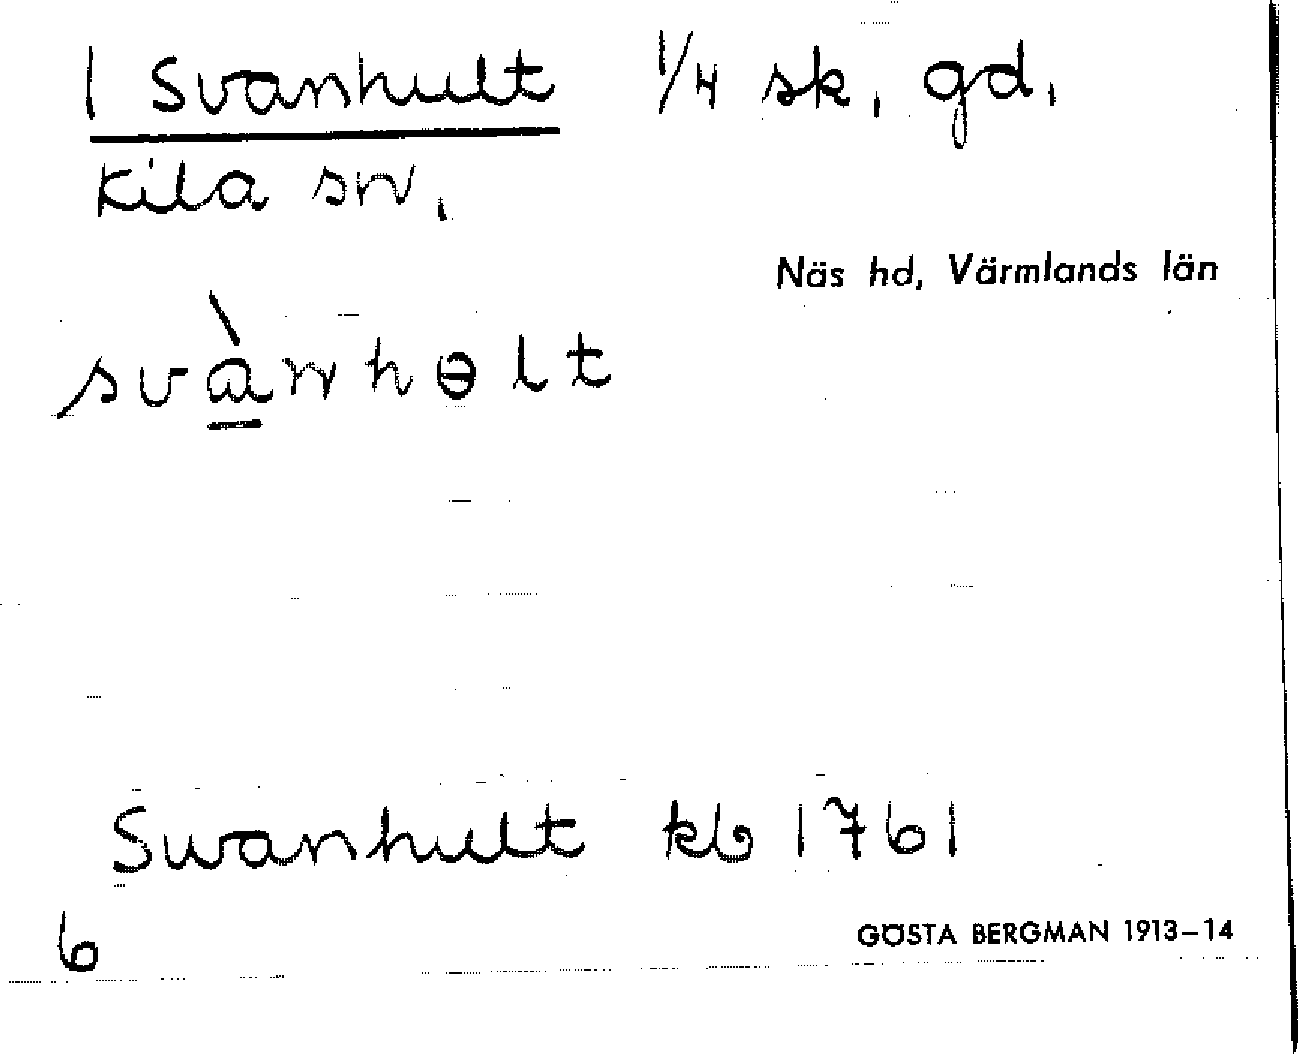 1 Svanhult 1/4 sk, gd,
Kila sn,
Näs hd, Värmlands län
svànhɵlt
Swanhult kb 1761
6
GÖSTA BERGMAN 1913–14